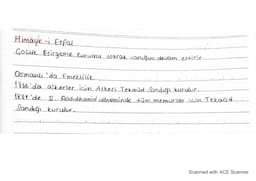 Himaye-i Etfal
Çocuk Esirgeme Kurumu olarak varlığını devam ettirir.
Osmanlı'da Emeklilik
'da askerler için Askeri Tekaüd Sandığı kurulur.
'de II. Abdülhamid döneminde tüm memurlar için Tekaüd
Sandığı kurulur.
Scanned with ACE Scanner